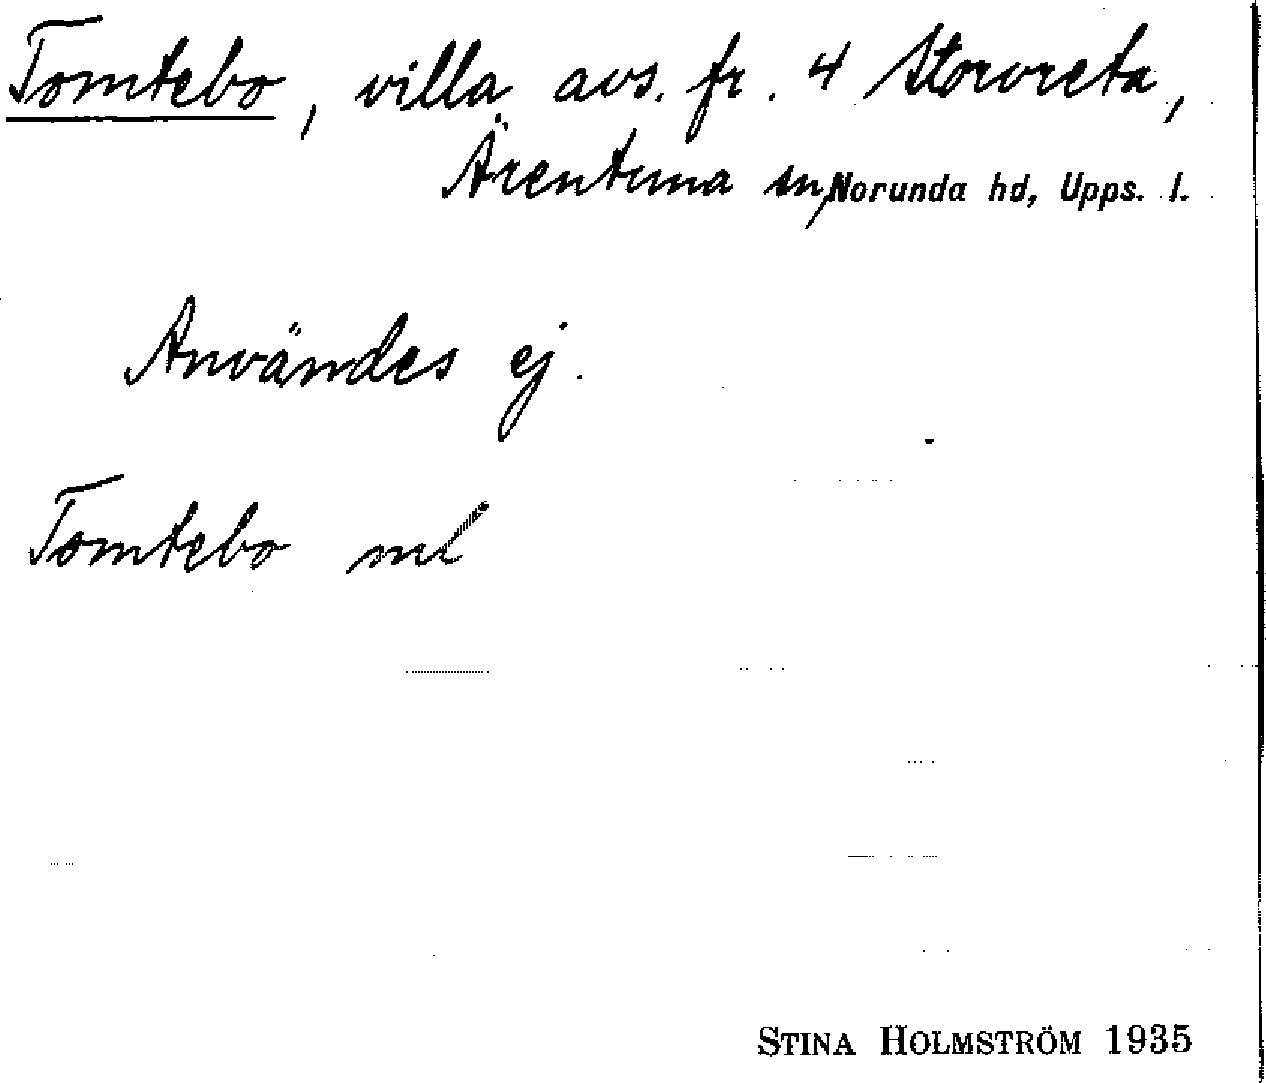 Tomtebo, villa avs. fr. 4 Storvreta,
Ärentuna sn, Norunda hd, Upps. l.
Användes ej.
Tomtebo ml
STINA HOLMSTRÖM 1935